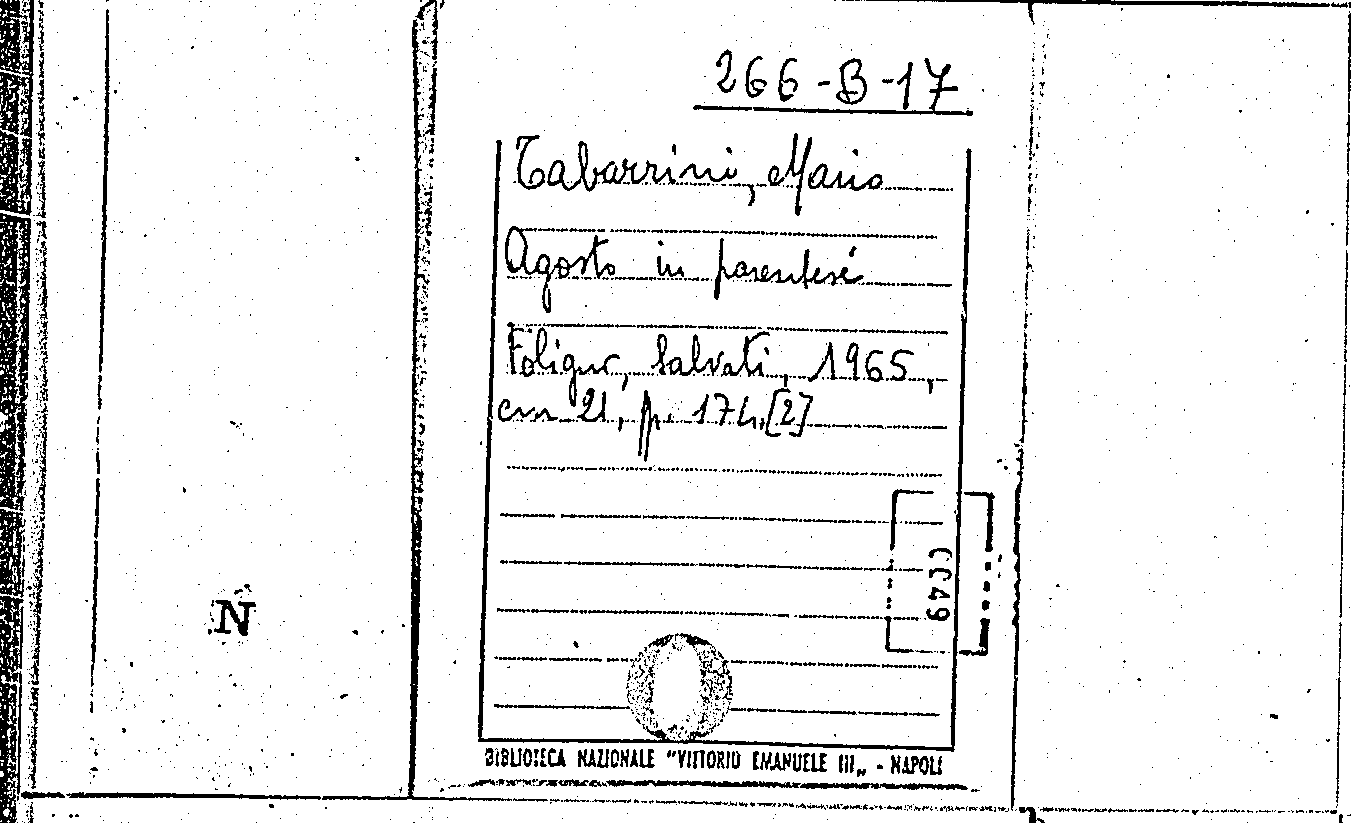 266-B-17
Tabarrini, Mario
Agosto in parentesi
Foligno, Salvati, 1965,
cm 21, p. 174,[2]
CC49
N
BIBLIOTECA NAZIONALE "VITTORIO EMANUELE III„ - NAPOLI